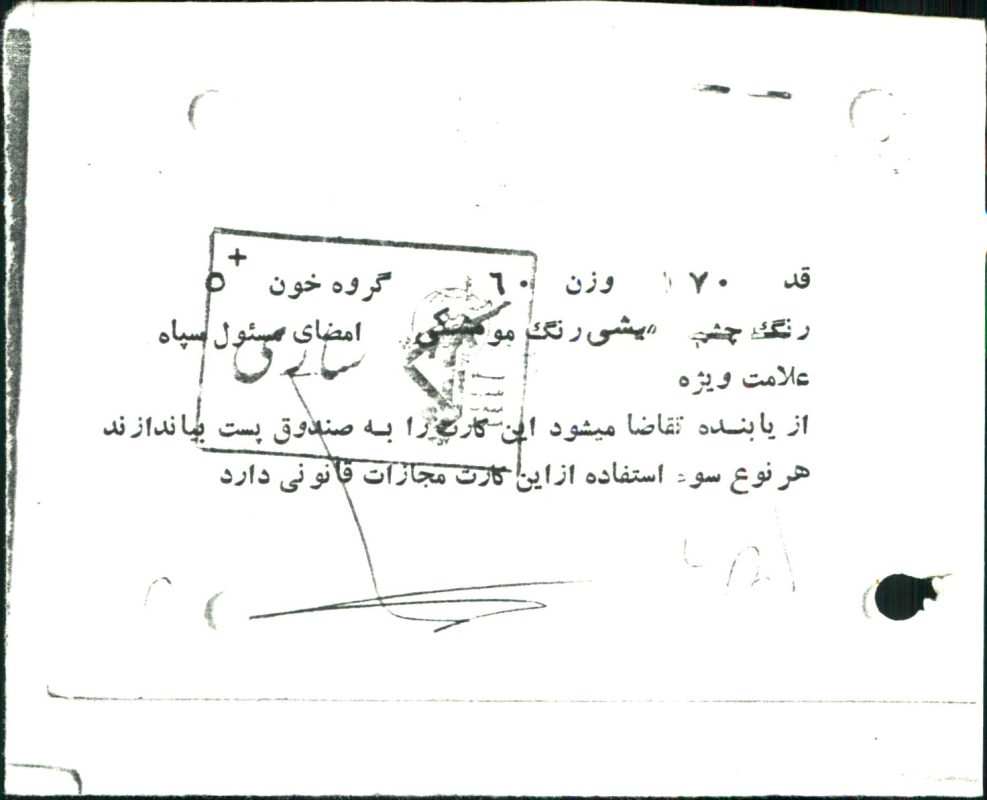 قد ۱۷۰ وزن ۶۰ گروه خون O+
رنگ چشم میشی رنگ مو مشکی امضای مسئول سپاه
ساری
علامت ویژه
از یابنده تقاضا میشود این کارت را به صندوق پست بیاندازند
هر نوع سوء استفاده ازاین کارت مجازات قانونی دارد